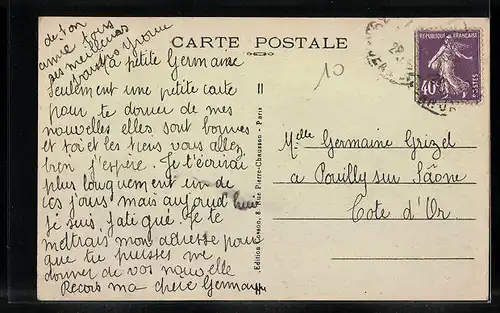 CARTE POSTALE
Ma petite Germaine
Seulement une petite carte
pour te donner de mes
nouvelles elles sont bonnes
et toi et les tiens vous allez
bien j'espère. Je t'écrirai
plus longuement un de
ces jours mais aujourd'hui
je suis fatigué. Je te
mettrais mon adresse pour
que tu puisses me
donner de vos nouvelle
Recois ma chère Germaine
de ton
amie
ses meilleurs
baisers Yvonne
10
Edition Cosson, 8, Rue Pierre-Chausson - Paris
II
REPUBLIQUE FRANÇAISE
40c
POSTES
Melle Germaine Grizel
a Pouilly sur Saône
Cote d'Or